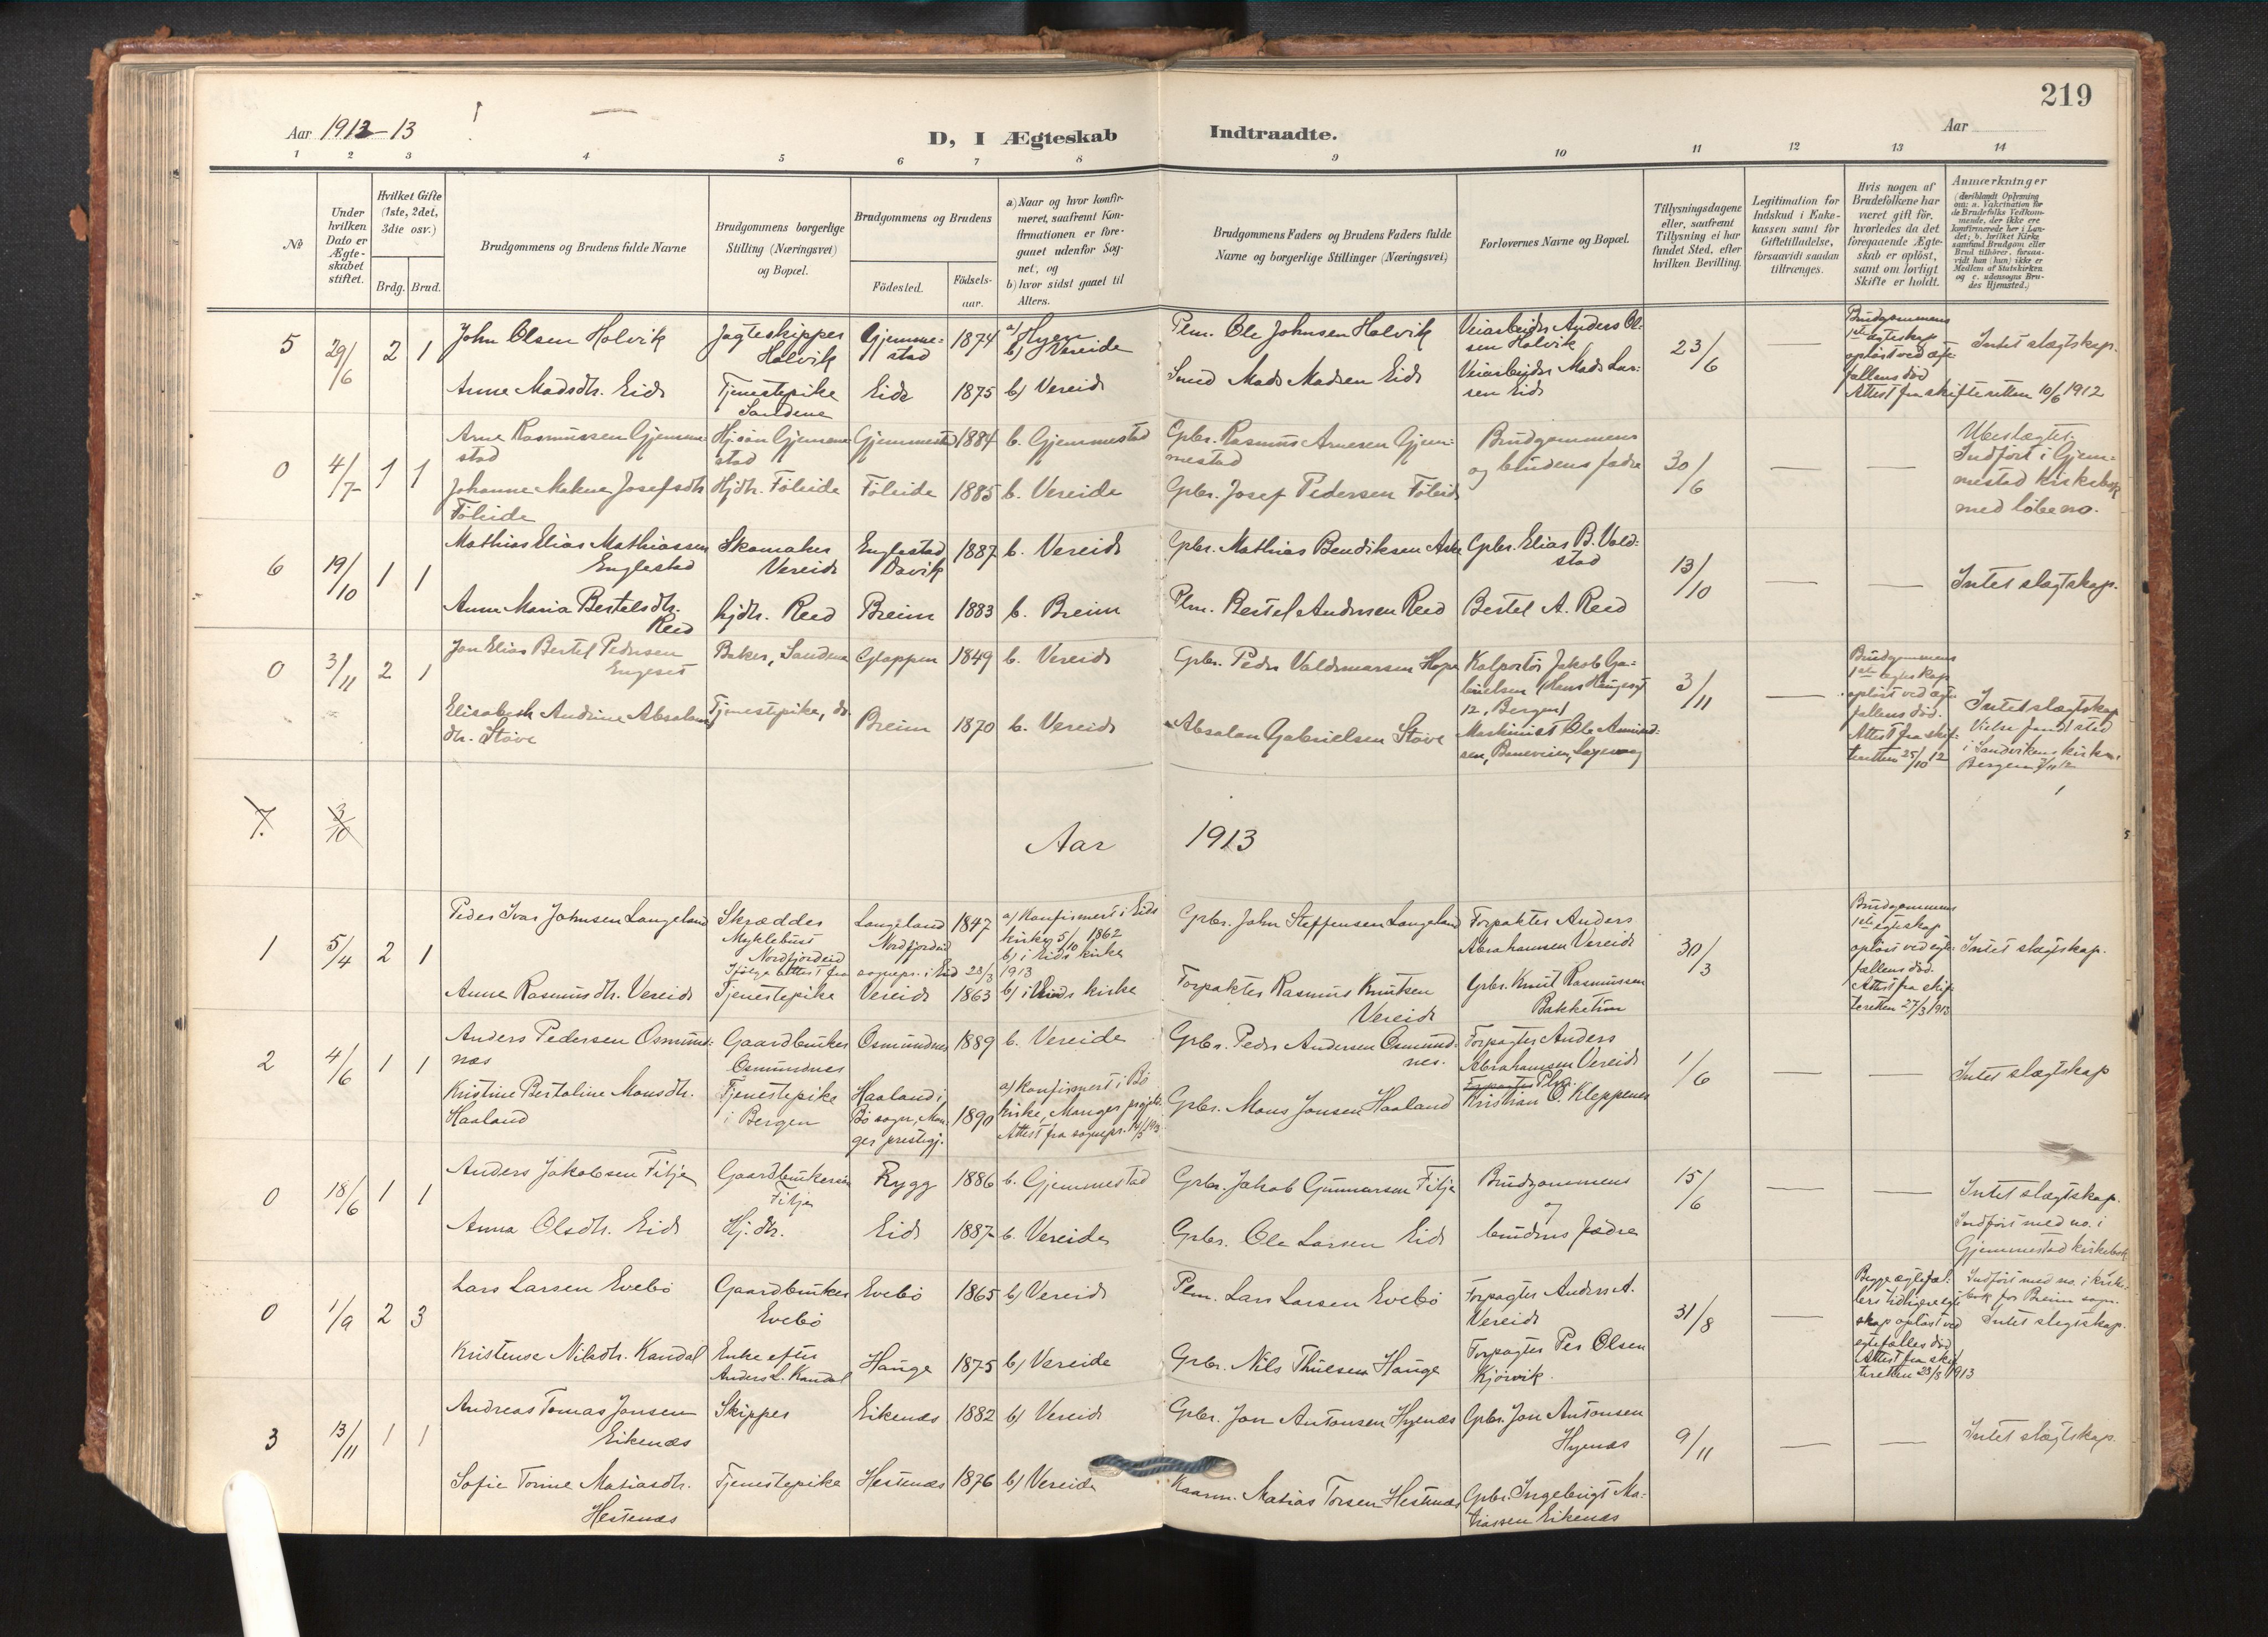 219
Aar 1912-13
D, I Ægteskab Indtraadte.
Aar
1 2 3 4 5 6 7 8 9 10 11 12 13 14
No
Under hvilken Dato er Ægteskabet stiftet.
Hvilket Gifte (1ste, 2det, 3die osv.)
Brdg. Brud.
Brudgommens og Brudens fulde Navne
Brudgommens borgerlige Stilling (Næringsvei) og Bopæl.
Brudgommens og Brudens
Födested.
Födsels-aar.
a) Naar og hvor konfir-
meret, saafremt Kon-
firmationen er fore-
gaaet udenfor Sog-
net, og
b) hvor sidst gaaet til
Alters.
Brudgommens Faders og Brudens Faders fulde
Navne og borgerlige Stillinger (Næringsvei)
Forlovernes Navne og Bopæl.
Tillysningsdagene
eller, saafremt
Tillysning ei har
fundet Sted, efter
hvilken Bevilling.
Legitimation for
Indskud i Enke-
kassen samt for
Giftetilladelse,
forsaavidt saadan
tiltrænges.
Hvis nogen af
Brudefolkene har
været gift för,
hvorledes da det
foregaaende Ægte-
skab er oplöst,
samt om lovligt
Skifte er holdt.
Anmærkninger
(deriblandt Oplysning
om: a. Vakcination for
de Brudefolks Vedkom-
mende, der ikke ere
konfirmerede her i Lan-
det; b. hvilket Kirke
samfund Brudgom eller
Brud tilhörer, forsaa-
vidt han (hun) ikke er
Medlem af Statskirken
og c. udensogns Bru-
des Hjemsted.)
5 29/6 2 1 John Olsen Holvik Jagteskipper Holvik Gjemme-stad 1874 a) Hyen b) Vereide Plm. Ole Johnsen Holvik Veiarbeider Anders Ol-sen Holvik 23/6 — Brudgommens 1ste egteskap opløst ved egte-fællens død Intet slægtskap.
Anne Madsdtr. Eide Tjenestepike Sandene Eide 1875 b) Vereide Smed Mads Madsen Eide Veiarbeider Mads Lar-sen Eide Attest fra skifteretten 10/6 1912
0 4/7 1 1 Arne Rasmussen Gjemme-stad Hjsøn Gjemme-stad Gjemmestad 1884 b. Gjemmestad Gpbr. Rasmus Arnesen Gjem-mestad Brudgommens og brudens fædre 30/6 — — Ubeslægtet. Indført i Gjem-mestad kirkebok med løbeno.
Johanne Josefsdtr. Føleide Hjdtr. Føleide Føleide 1885 b. Vereide Gpbr. Josef Pedersen Føleide
6 19/10 1 1 Mathias Elias Mathiassen Englestad Skomaker Vereide Englestad Davik 1887 b. Vereide Gpbr. Mathias Bendiksen Gpbr. Elias B. Vold-stad 13/10 — — Intet slægtskap.
Anne Maria Bertelsdtr. Reed hjdtr. Reed Breim 1883 b. Breim Plm. Bertel Andersen Reed Bertel A. Reed
0 3/11 2 1 Jon Elias Bertel Pedersen Engeset Baker, Sandene Gloppen 1849 b. Vereide Gpbr. Peder Valdemarsen Hope Kolportør Jakob Ga-brielsen 12, Bergen) 3/11 — Brudgommens 1ste egteskap opløst ved egte-fællens død. Attest fra skif-teretten 25/10 12 Intet slægtskap Vielse fandt sted i Sandvikens kirke, Bergen 3/11 12
Elisabeth Andrine Absalons-dtr. Støve Tjenestepike, do. Breim 1870 b. Vereide Absalon Gabrielsen Støve Maskinist Ole Amund-sen,
7. 3/10
Aar 1913
1 5/4 2 1 Peder Ivar Johnsen Langeland Skrædder Myklebust Nordfjordeid Langeland Nordfjordeid 1847 a) Konfirmert i Eids kirke 5/10 1862 b) i Eids kirke Gpbr. John Steffensen Langeland Forpakter Anders Abrahamsen Vereide 30/3 — Brudgommens 1ste egteskap opløst ved egte-fællens død. Attest fra skif-teretten 27/3 1913 Intet slægtskap.
Ifølge attest fra sognepr. i Eid 23/3 1913
Anne Rasmusdtr. Vereide Tjenestepike Vereide 1863 b) i Eids kirke Forpakter Rasmus Knutsen Vereide Gpbr. Knut Rasmussen Bakketun
2 4/6 1 1 Anders Pedersen Osmund-næs Gaardbruker Osmundnes Osmundnes 1889 b. Vereide Gpbr. Peder Andersen Osmund-nes. Forpagter Anders Abrahamsen Vereide 1/6 — — Intet slægtskap
Kristine Bertoline Monsdtr. Haaland Tjenestepike i Bergen Haaland i Bø sogn, Man-ger prestegj. 1890 a) Konfirmert i Bø kirke, Manger prgjld. Attest fra sognepr. Gpbr. Mons Jonsen Haaland Forpagter Plm. Kristian O. Kleppenes
0 18/6 1 1 Anders Jakobsen Fitje Gaardbrukersøn Fitje Rygg 1886 b. Gjemmestad Gpbr. Jakob Gunnarsen Fitje Brudgommens og brudens fædre 15/6 — — Intet slægtskap. Indført med no. i Gjemmestad kirkebok
Anna Olsdtr. Eide Hj. dtr. Eide 1887 b. Vereide Gpbr. Ole Larsen Eide
0 1/9 2 3 Lars Larsen Evebø Gaardbruker Evebø Evebø 1865 b) Vereide Plm. Lars Larsen Evebø Forpagter Anders A. Vereide 31/8 — Begge egtefæl-lers tidligere egte-skap opløst ved egtefælles død Attest fra skif-teretten 23/8 1913 Indført med no. i kirke-bok for Breim sogn. Intet slegtskap.
Kristense Nilsdtr. Kandal Enke efter Anders L. Kandal Hauge 1875 b) Vereide Gpbr. Nils Thuesen Hauge Forpagter Per Olsen Kjørvik.
3 13/11 1 1 Andreas Tomas Jonsen Eikenæs Skipper Eikenæs 1882 b) Vereide Gpbr. Jon Antonsen Hyenæs Gpbr. Jon Antonsen Hyenæs 9/11 — — Intet slægtskap.
Sofie Tomine Matiasdtr. Hestenæs Tjenestepike Hestenæs 1876 b) Vereide Kaarm. Matias Torsen Hestenæs Gpbr. Ingebrigt Ma-tiassen Eikenæs